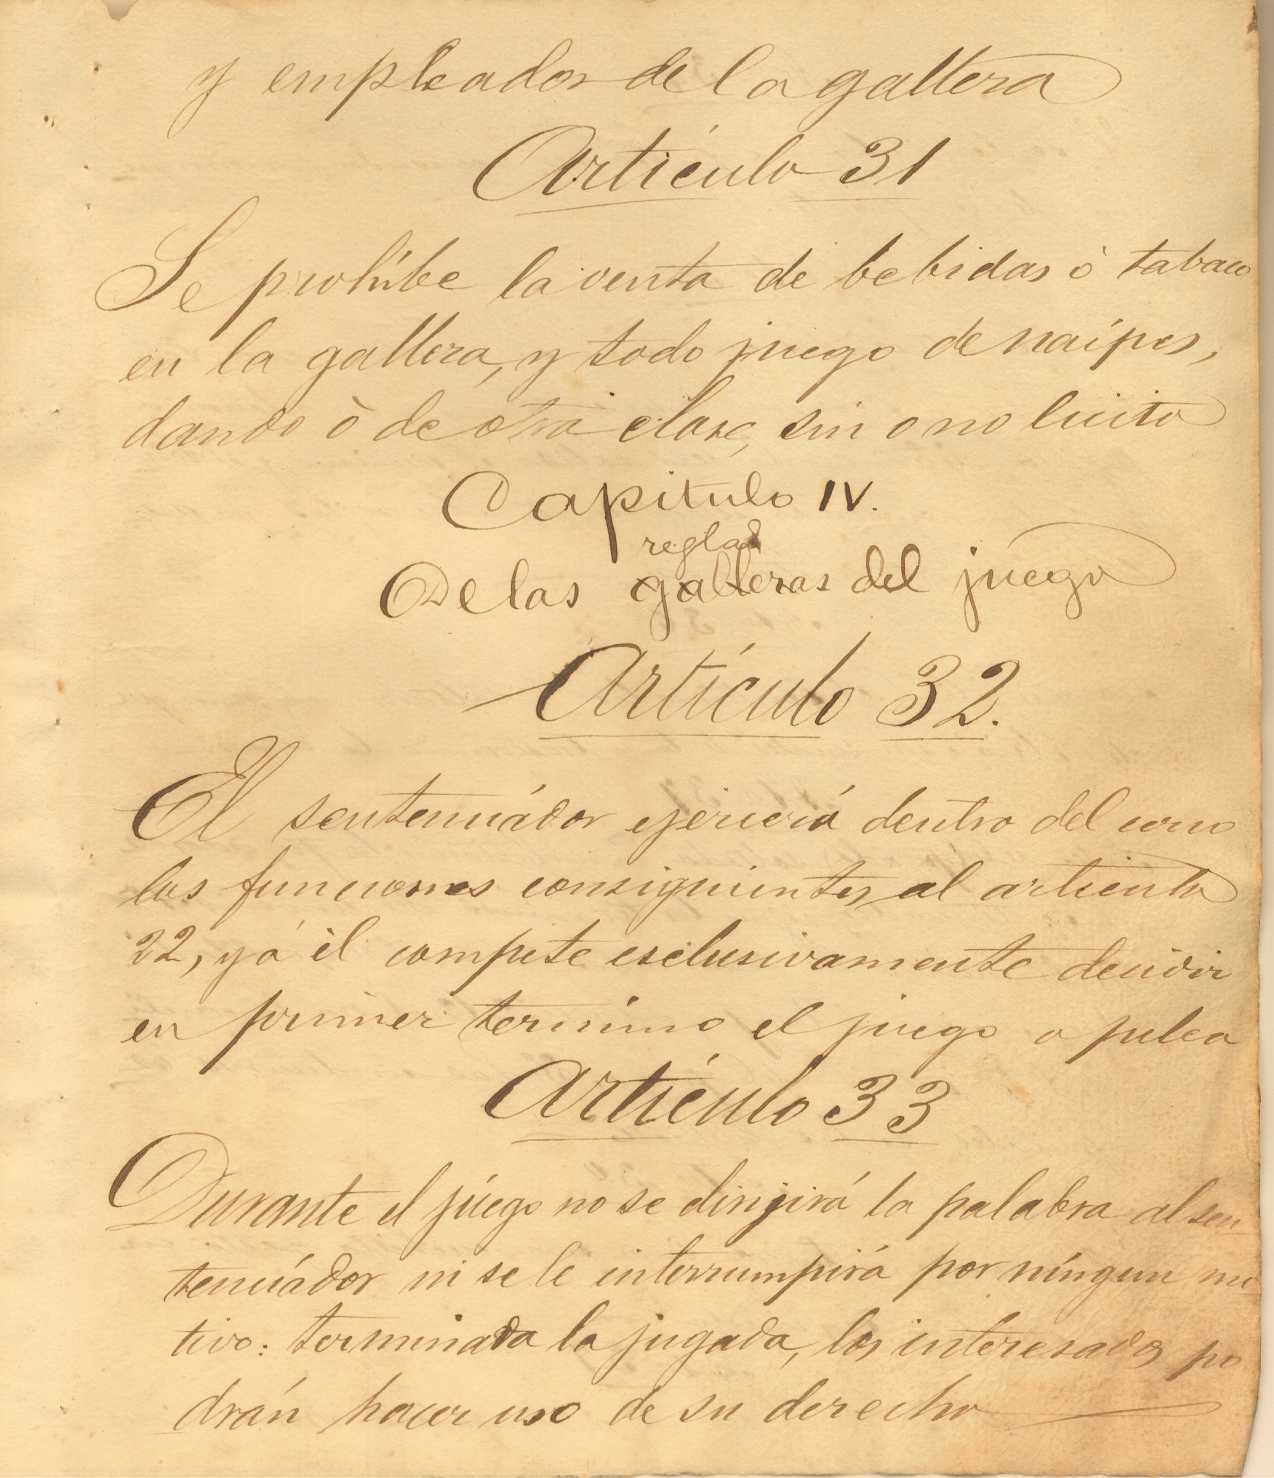 y empleados de la gallera
Artículo 31
Se prohíbe la venta de bebidas ò tabaco
en la gallera, y todo juego de naípes,
dando ò de otra clase, sin o no licito
Capitulo IV.
reglas
De las galleras del juego
Artículo 32.
El sentenciádor ejercerá dentro del corro
las funciones consiguientes al articulo
22, y á èl compete esclusivamente decidir
en primer termino el juego o pelea
Artículo 33
Durante el juégo no se dirijirá la palabra al sen
tenciádor ni se le interrumpirá por níngun mo
tivo: terminada la jugada, los interesados po
drán hacer uso de su derecho